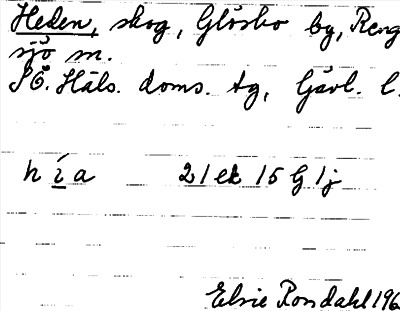 Heden, skog, Glösbo by, Reng
sjö m.
SÖ. Häls. doms. tg, Gävl. l.
h í a 21ek 15 G 1j
Elsie Rondahl 196